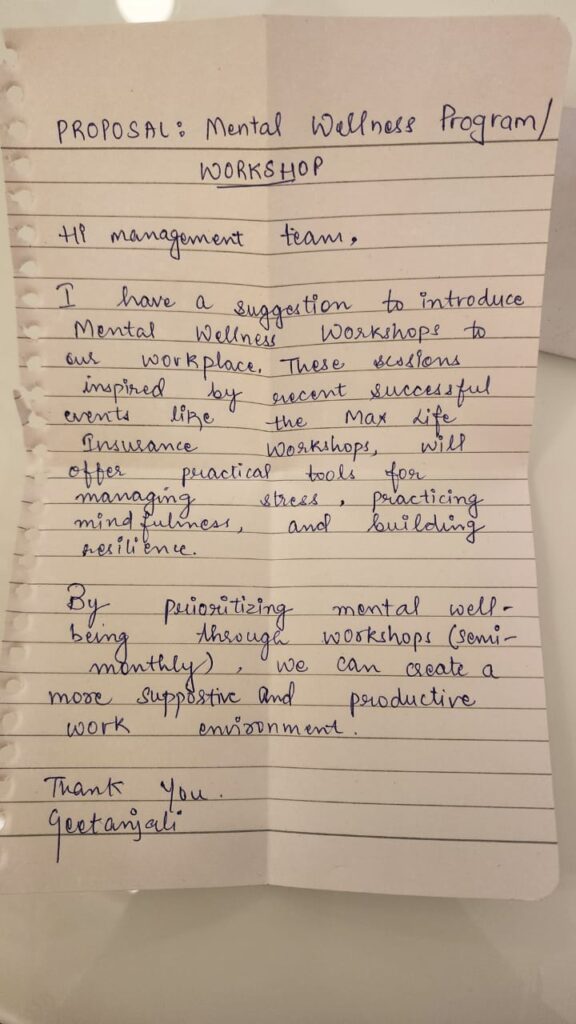 PROPOSAL: Mental Wellness Program/
WORKSHOP
Hi management team,
I have a suggestion to introduce
Mental Wellness Workshops to
our workplace. These sessions
inspired by recent successful
events like the Max Life
Insurance Workshops, will
offer practical tools for
managing stress, practicing
mindfullness, and building
resilience.
By prioritizing mental well-
being through workshops (semi-
monthly), we can create a
more supportive and productive
work environment.
Thank you.
Geetanjali